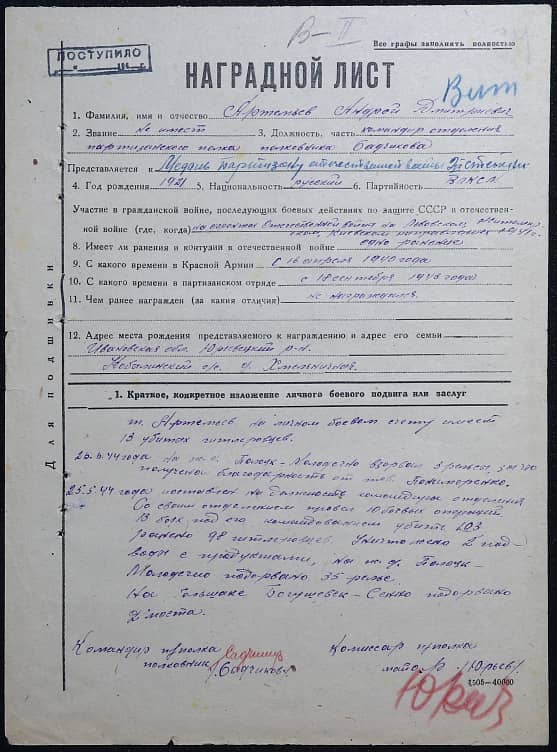 В-II
Все графы заполнять полностью
ПОСТУПИЛО
НАГРАДНОЙ ЛИСТ
Вит
1. Фамилия, имя и отчество Артемьев Андрей Дмитриевич
2. Звание не имеет 3. Должность, часть командир отделения
партизанского полка полковника Садчикова
Представляется к Медаль Партизану отечественной войны 2й степени
4. Год рождения 1921 5. Национальность русский 6. Партийность ВЛКСМ
Участие в гражданской войне, последующих боевых действиях по защите СССР и отечествен-
ной войне (где, когда) на фронтах Отечественной войны на Львовском,
Киевском направлении
8. Имеет ли ранения и контузии в отечественной войне одно ранение
9. С какого времени в Красной Армии с 16 апреля 1940 года
10. С какого времени в партизанском отряде с 18 сентября 1943 года
11. Чем ранее награжден (за какия отличия) не награждался.
12. Адрес места рождения представляемого к награждению и адрес его семьи
Ивановская обл. Юрьевецкий р-н.
с/с. д. Хмельничная.
Для подшивки
1. Краткое, конкретное изложение личного боевого подвига или заслуг
т. Артемьев на личном боевом счету имеет
13 убитых гитлеровцев.
44 года на ж.д. Полоцк-Молодечно взорвал 3 рельса, за что
получена благодарность от тов. Пономаренко.
25.5.44 года поставлен на должность командира отделения
Со своим отделением провел 10 боевых операций
В боях под его командованием убито 103
ранено 98 гитлеровцев. Уничтожено 2 под-
воды с продуктами, на ж.д. Полоцк-
Молодечно подорвано 35 рельс.
На большаке Богушевск-Сенно подорвано
2 моста.
Командир п/полка Комиссар п/полка
полковник /Садчиков/ майор /Юрьев/
1505—40000